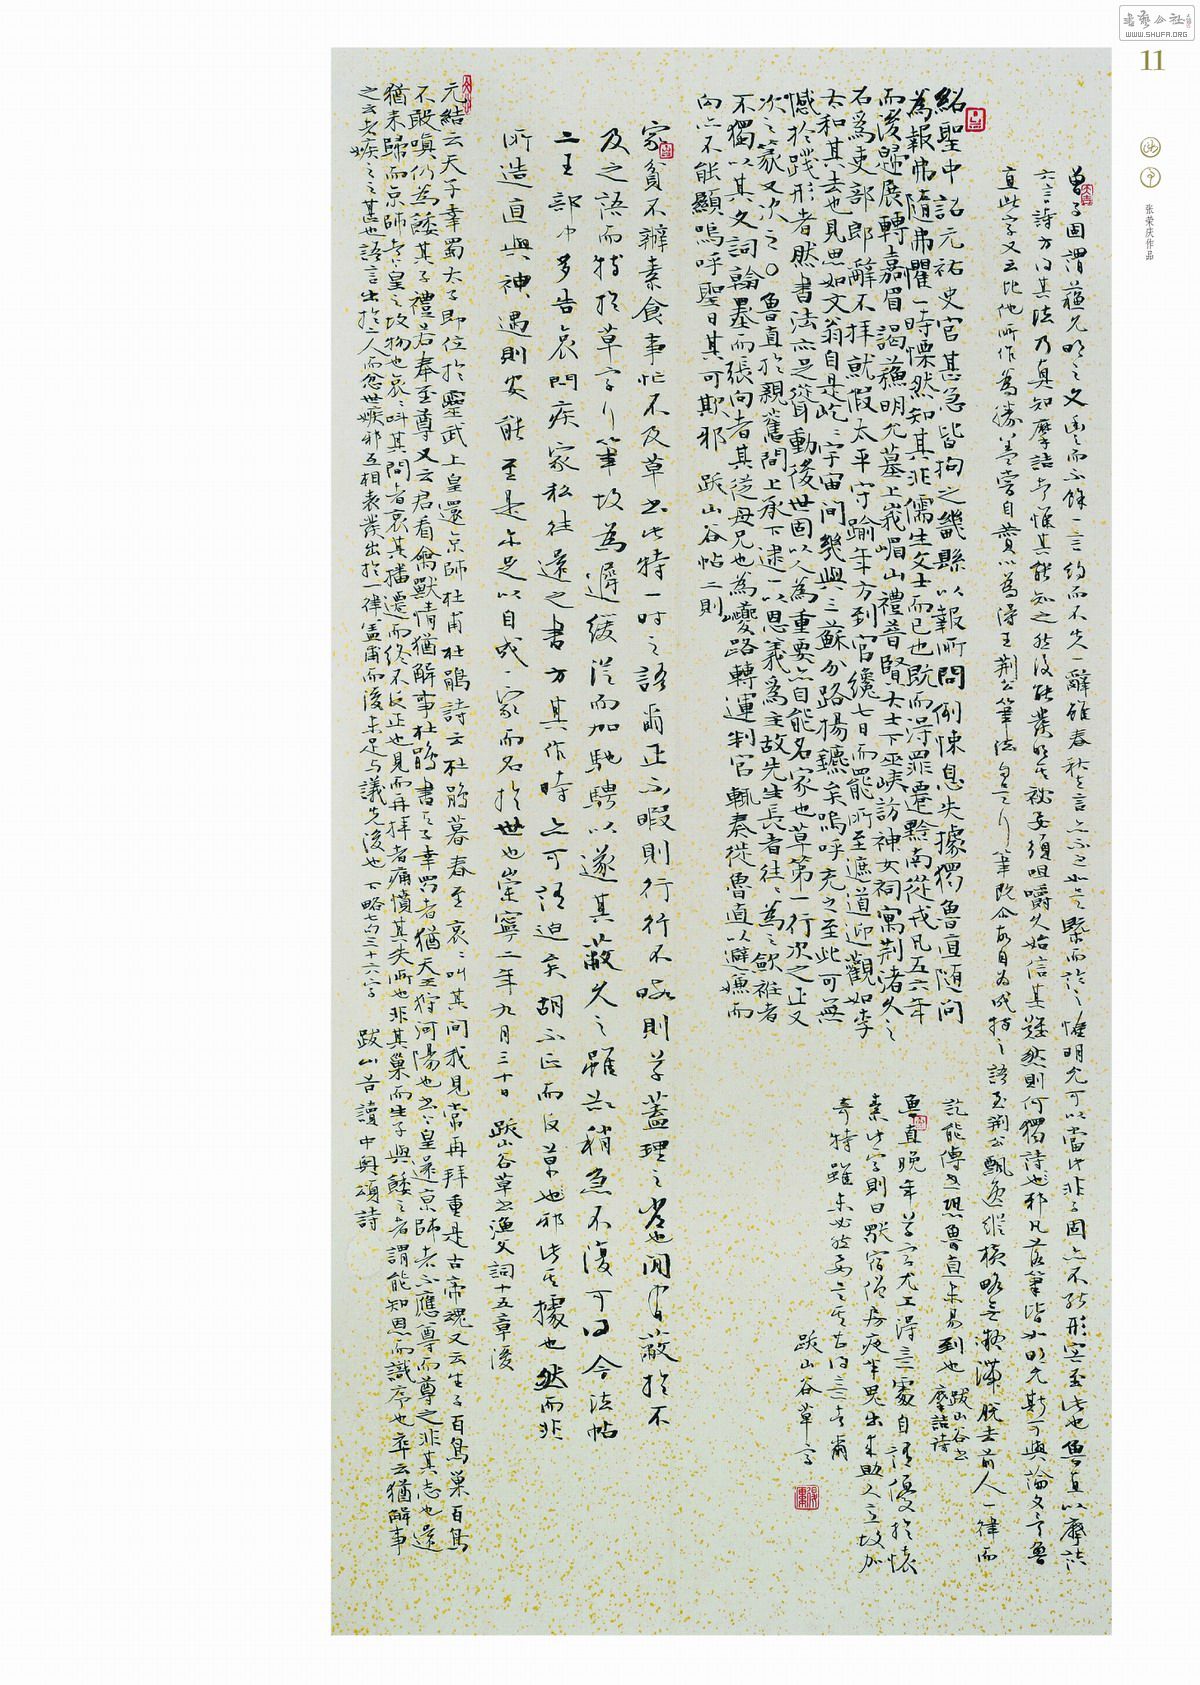 书艺公社
WWW.SHUFA.ORG
11
张荣庆作品
曾子固謂蘇明允之文
六言詩方得其法乃真知摩詰者惟其能知之然後能發明其秘要須咀嚼久始信其難然則何獨詩也邪凡落筆皆如明允斯可與論文之言魯
直此字又云比他所作為勝蓋嘗自贊以為得王荊公筆法自是行筆既爾故自為成特之語至荊公飄逸縱橫略無凝滯脫去前人一律而
訖能傳世恐魯直未易到也 跋山谷書
摩詰詩
紹聖中詔元祐史官甚急皆拘之畿縣以報所問例悚息失據獨魯直隨問
為報弗隨弗懼一時慄然知其非儒生文士而已也既而得罪遷黔南從戎凡五六年
而後歸展轉嘉眉謁蘇明允墓上峨嵋山禮普賢大士下巫峽訪神女祠寓荊渚久之
召為吏部郎辭不拜就假太平守踰年方到官纔七日而罷所至遮道迎觀如李
太和其去也見思如文翁自是屹屹宇宙間幾與三蘇分路揚鑣矣嗚呼充之至此可無
憾於踐形者然書法亦足聳動後世固以人為重要亦自能名家也草第一行次之正又
次之篆又次之〇魯直於親舊間上承下逮一以恩義為主故先生長者往往為之斂衽者
不獨以其文詞翰墨而張向者其從母兄也為夔路轉運判官輒奏徙魯直以避嫌而
向亦不能顯嗚呼聖日其可欺邪 跋山谷帖二則
魯直晚年草字尤工得意處自謂優於懷
素此字則曰獸宿僧房夜半鬼出來助人意故加
奇特雖未必然要之其甚得意者爾
跋山谷草字
家貧不辦素食事忙不及草書此特一時之語爾正不暇則行行不及則草蓋理之常也間有蔽於不
及之語而特於草字行筆故為遲緩從而加馳騁以遂其蔽久之雖欲稍急不復可得今法帖
二王部中多告哀問疾家私往還之書方其作時亦可謂迫矣胡不正而反草也邪此其據也然而非
所造直與神遇則安能至是亦足以自成一家而名於世也崇寧二年九月三十日 跋山谷草書漁父詞十五章後
元結云天子幸蜀太子即位於靈武上皇還京師杜甫杜鵑詩云杜鵑暮春至哀哀叫其間我見常再拜重是古帝魂又云生子百鳥巢百鳥
不敢嗔仍為餧其子禮若奉至尊又云君看禽獸情猶解事杜鵑書天子幸蜀者猶天王狩河陽也書上皇還京師者不應尊而尊之非其志也還
猶未歸而京師者上皇之故物也哀哀叫其間者哀其播遷而終不反正也見而再拜者痛憤其失所也非其巢而生子與餧之者謂能知恩而識序也卒云猶解事
之云者嫉之之甚也語言出於二人而忿世嫉邪互相表裏發出於一律蓋甫而後未足与議先後也 下略七句三十六字 跋山谷讀中興頌詩